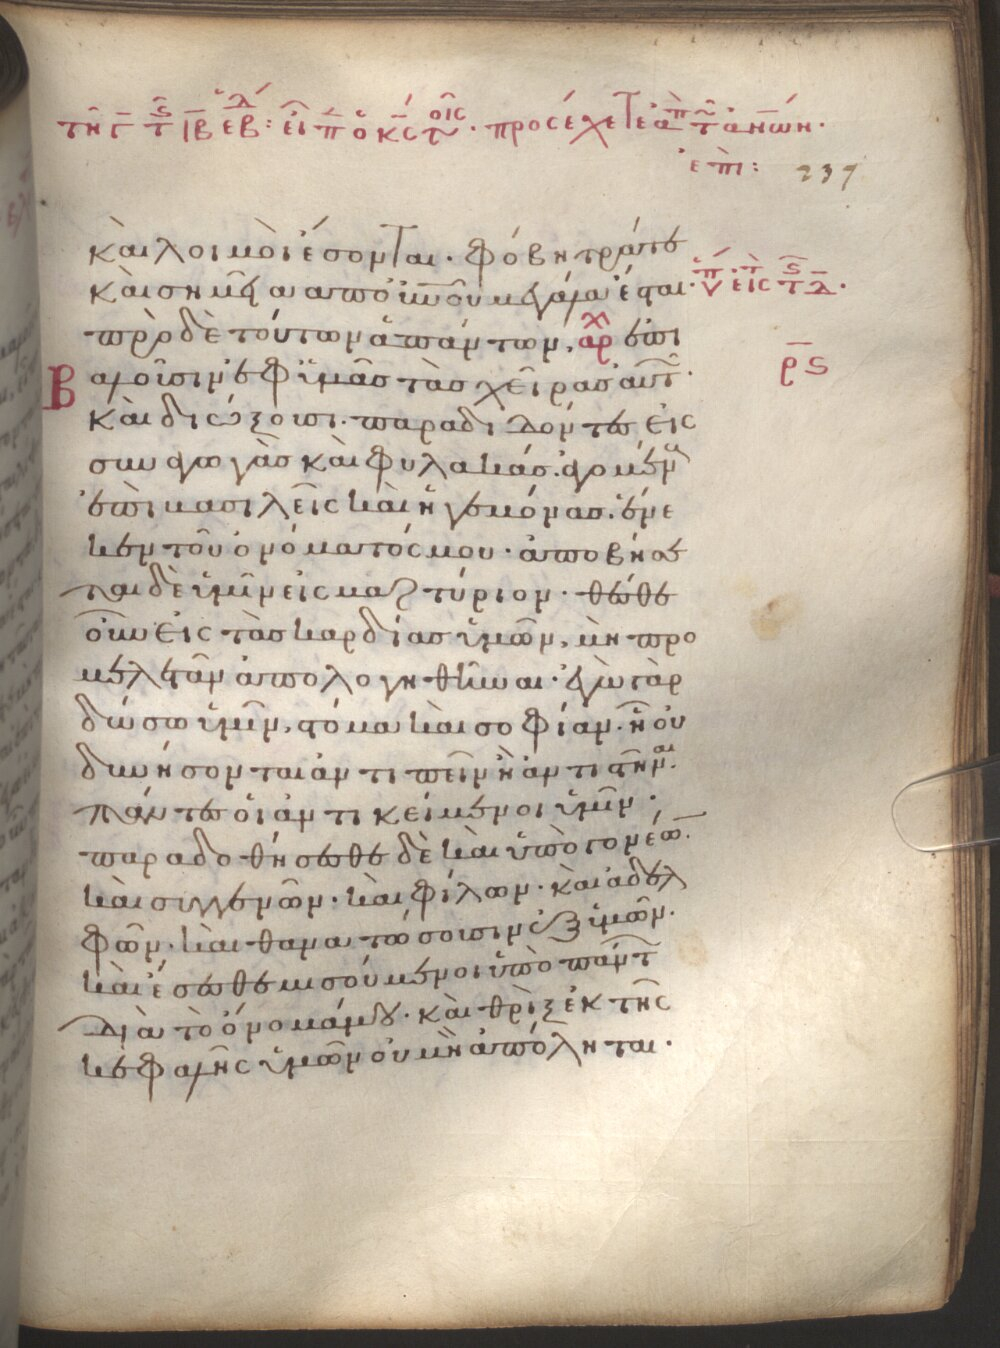 τῆ γ τ ς ιβ εβ : εἶπ ὁ κς τοῖς · προσέχετε ἀπ τ ἀνων ·
ἐπὶ : 237
καὶ λοιμοὶ ἔσονται · φόβητρά τε
καὶ σημεῖα ἀπ οὐνοῦ μεγάλα ἔσται ·
πρὸ δὲ τούτων ἁπάντων, ἀρχ ἐπι
βαλοῦσιν ἐφ ὑμᾶς τὰς χεῖρας αὐτ ·
καὶ διώξουσι · παραδιδόντες εἰς
συναγωγὰς καὶ φυλακάς · ἀγομέν
ἐπὶ βασιλεῖς καὶ ἡγεμόνας · ἕνε
κεν τοῦ ὀνόματός μου · ἀποβήσε
ται δὲ ὑμῖν εἰς μαρτύριον · θέσθε
οὖν εἰς τὰς καρδίας ὑμῶν, μὴ προ
μελετᾶν ἀπολογηθῆναι · ἐγὼ γὰρ
δώσω ὑμῖν, στόμα καὶ σοφίαν · ᾗ οὐ
δυνήσονται ἀντιπεῖν ἢ ἀντιστῆναι ·
πάντες οἱ ἀντικείμενοι ὑμῖν ·
παραδοθήσεσθε δὲ καὶ ὑπὸ γονέων ·
καὶ συγγενῶν · καὶ φίλων · καὶ ἀδελ
φῶν · καὶ θανατώσουσιν ἐξ ὑμῶν ·
καὶ ἔσεσθε μισούμενοι ὑπὸ πάντ
διὰ τὸ ὄνομά μου · καὶ θρὶξ ἐκ τῆς
κεφαλῆς ὑμῶν οὐ μὴ ἀπόληται ·
εἰς τ δ ·
ρς